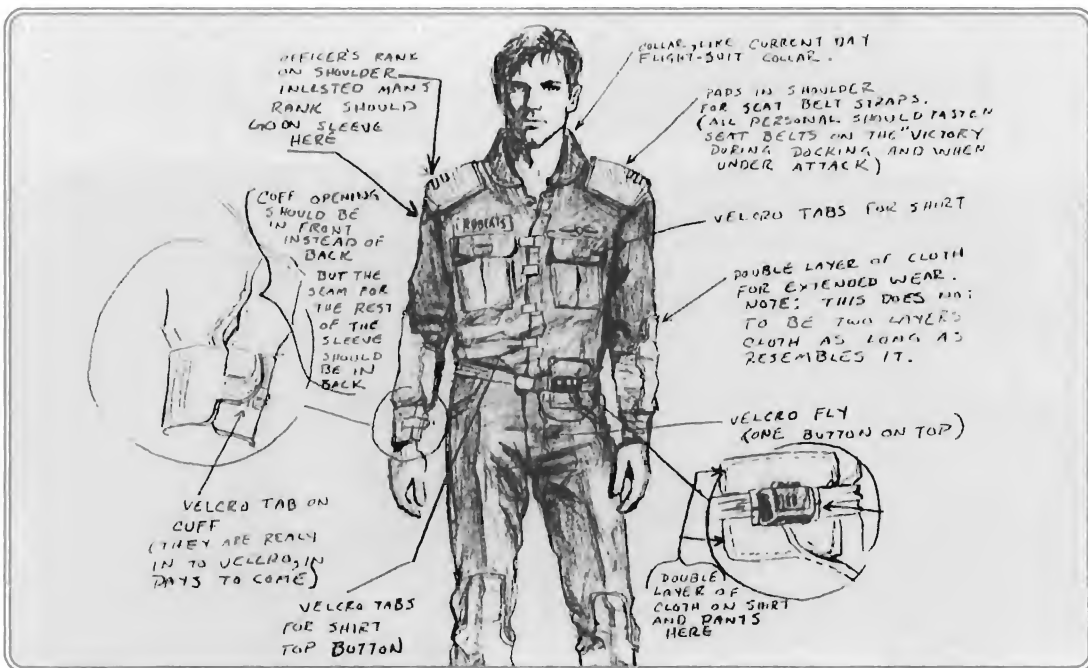 OFFICER'S RANK
ON SHOULDER
INLISTED MANS
RANK SHOULD
GO ON SLEEVE
HERE
COLLAR, LIKE CURRENT DAY
FLIGHT-SUIT COLLAR.
PADS IN SHOULDER
FOR SEAT BELT STRAPS.
(ALL PERSONAL SHOULD FASTEN
SEAT BELTS ON THE "VICTORY
DURING DOCKING AND WHEN
UNDER ATTACK)
CUFF OPENING
SHOULD BE
IN FRONT
INSTEAD OF
BACK
BUT THE
SEAM FOR
THE REST
OF THE
SLEEVE
SHOULD
BE IN
BACK
ROBERTS
VELCRO TABS FOR SHIRT
DOUBLE LAYER OF CLOTH
FOR EXTENDED WEAR.
NOTE: THIS DOES NOT
TO BE TWO LAYERS
CLOTH AS LONG AS
RESEMBLES IT.
VELCRO FLY
(ONE BUTTON ON TOP)
VELCRO TAB ON
CUFF
(THEY ARE REALY
IN TO VELCRO, IN
DAYS TO COME)
VELCRO TABS
FOR SHIRT
TOP BUTTON
DOUBLE
LAYER OF
CLOTH ON SHIRT
AND PANTS
HERE